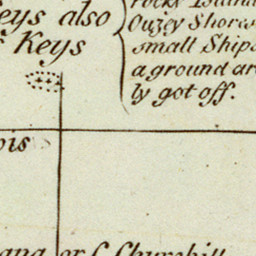 eys also
Keys
rocks Island
Ouzey Shores
small Ships
a ground ar
ly got off.
ois
ana or C. Churchill